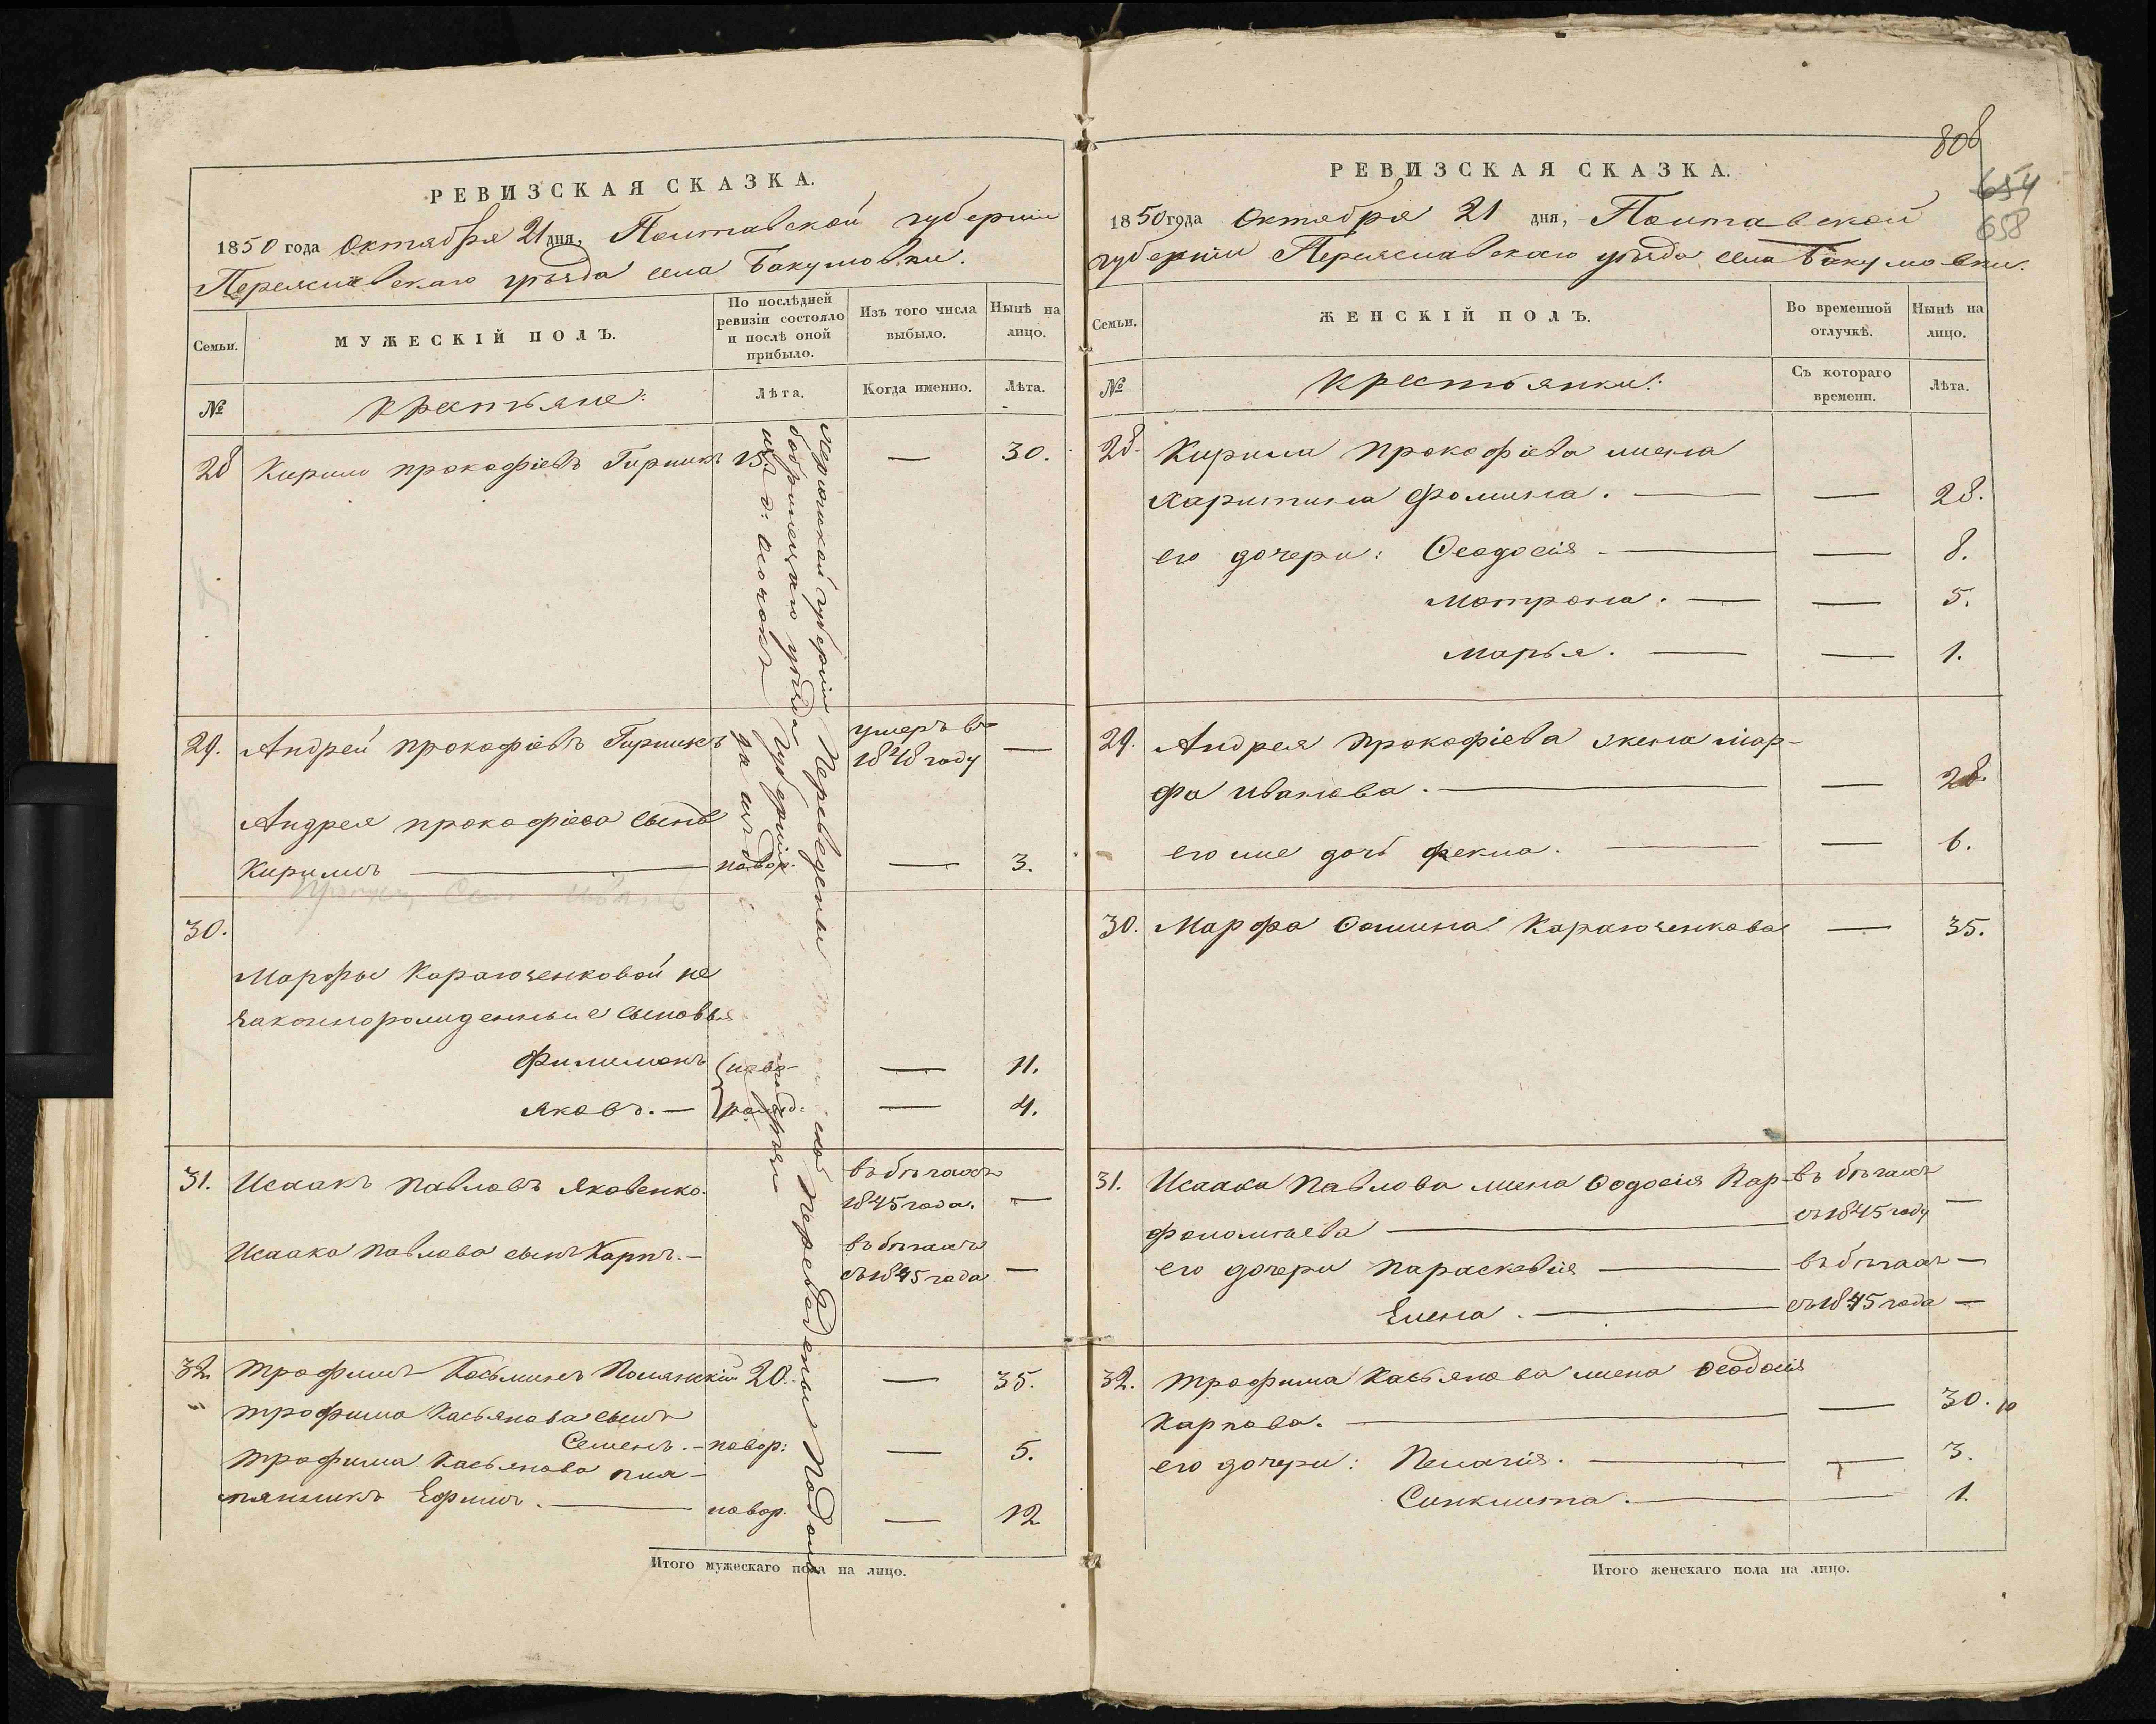 РЕВИЗСКАЯ СКАЗКА.
1850 года Октября 21 дня, Полтавской губернiи
Переяславскаго уѣзда села Бакумовки.
Семьи.
МУЖЕСКIЙ ПОЛЪ.
По послѣдней
ревизiи состояло
и послѣ оной
прибыло.
Изъ того числа
выбыло.
Нынѣ на
лицо.
№
Крестьяне:
Лѣта.
Когда именно.
Лѣта.
28 Кирило Прокофiевъ Гиринкъ — 30.
29. Андрей Прокофiевъ Гиринкъ умеръ въ 1848 году —
Андрея Прокофiева сынъ
Кирилъ — новор. — 3.
30.
Марфы Караюченковой не
законнорожденные сыновья
Филимонъ ново- — 11.
Яковъ. — рожд: — 4.
31. Исаакъ Павловъ Яковенко. въ бѣгахъ
1845 года. —
Исаака Павлова сынъ Карпъ. — въ бѣгахъ
съ 1845 года —
32. Трофимъ Косьминъ 20. — 35.
Трофима Касьянова сынъ
Семенъ. — новор: — 5.
Трофима Касьянова пле-
мянникъ Ефимъ. — новор. — 12
Переведены
губернiи
уѣзда
Переведены
Итого мужескаго пола на лицо.
806
654
658
РЕВИЗСКАЯ СКАЗКА.
1850 года Октября 21 дня, Полтавской
губернiи Переяславскаго уѣзда села Бакумовки.
Семьи.
ЖЕНСКIЙ ПОЛЪ.
Во временной
отлучкѣ.
Нынѣ на
лицо.
№
Крестьянки:
Съ котораго
времени.
Лѣта.
28. Кирила Прокофiева жена
Харитина Фомина. — — 28.
его дочери: Ѳеодосiя — — 8.
Матрона. — — 5.
Марья. — — 1.
29. Андрея Прокофiева жена Мар-
фа Иванова. — — 28.
его же дочь Фекла. — — 6.
30. Марфа Караюченкова — 35.
31. Исаака Павлова жена Ѳеодосiя въ бѣгахъ
съ 1845 году —
его дочери Параскевiя — въ бѣгахъ —
Елена. — съ 1845 года —
32. Трофима Касьянова жена Ѳеодосiя
Карпова. — — 30.
его дочери: Пелагiя. — — 3.
Синклита. — — 1.
Итого женскаго пола на лицо.